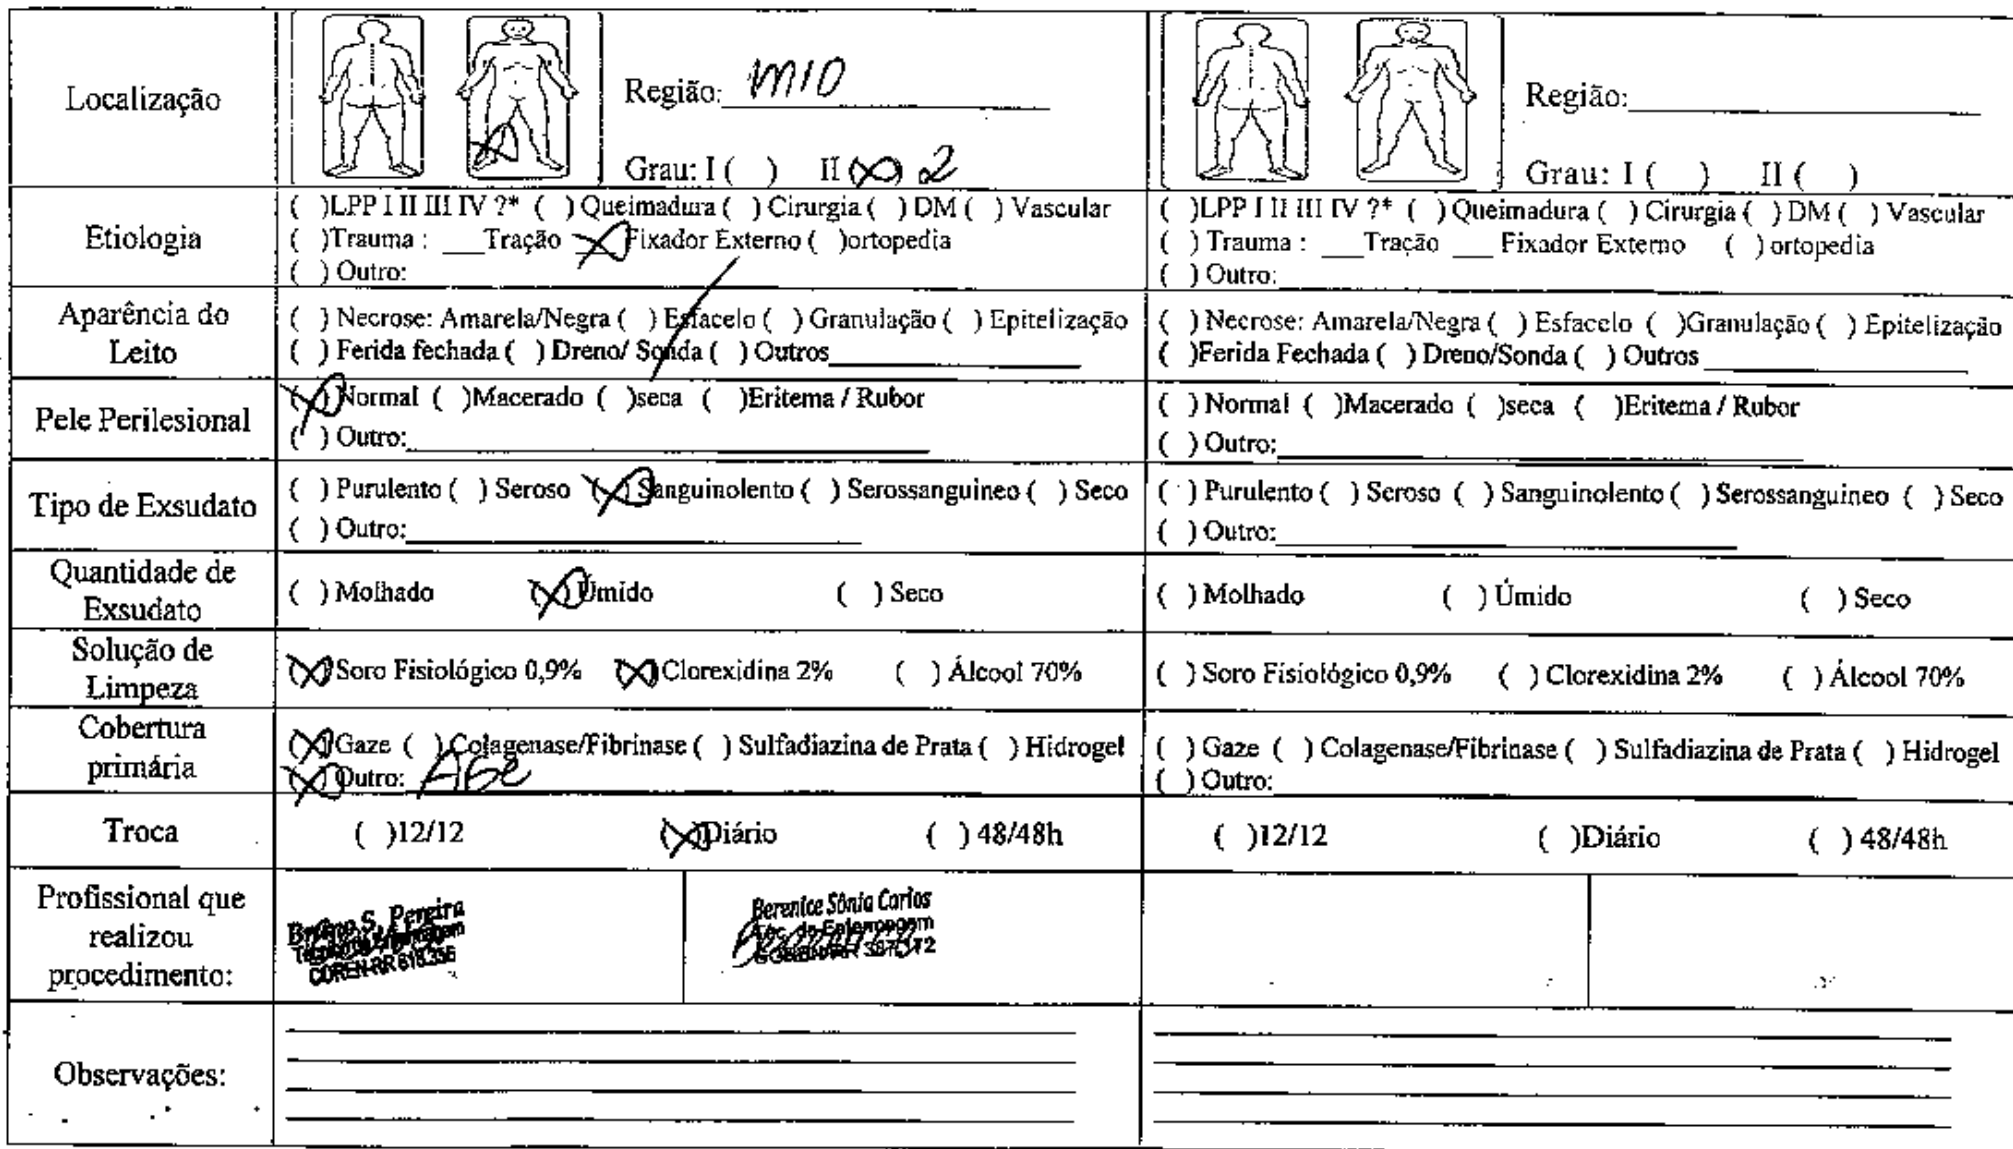 Localização
Região: MID
Grau: I ( ) II (X) 2
Região:
Grau: I ( ) II ( )
Etiologia
( )LPP I II III IV ?* ( ) Queimadura ( ) Cirurgia ( ) DM ( ) Vascular
( )Trauma : ___Tração X Fixador Externo ( )ortopedia
( ) Outro:
( )LPP I II III IV ?* ( ) Queimadura ( ) Cirurgia ( ) DM ( ) Vascular
( ) Trauma : ___Tração ___ Fixador Externo ( ) ortopedia
( ) Outro:
Aparência do
Leito
( ) Necrose: Amarela/Negra ( ) Esfacelo ( ) Granulação ( ) Epitelização
( ) Ferida fechada ( ) Dreno/ Sonda ( ) Outros
( ) Necrose: Amarela/Negra ( ) Esfacelo ( )Granulação ( ) Epitelização
( )Ferida Fechada ( ) Dreno/Sonda ( ) Outros
Pele Perilesional
(X) Normal ( )Macerado ( )seca ( )Eritema / Rubor
( ) Outro:
( ) Normal ( )Macerado ( )seca ( )Eritema / Rubor
( ) Outro:
Tipo de Exsudato
( ) Purulento ( ) Seroso (X) Sanguinolento ( ) Serossanguineo ( ) Seco
( ) Outro:
( ) Purulento ( ) Seroso ( ) Sanguinolento ( ) Serossanguineo ( ) Seco
( ) Outro:
Quantidade de
Exsudato
( ) Molhado (X) Úmido ( ) Seco
( ) Molhado ( ) Úmido ( ) Seco
Solução de
Limpeza
(X) Soro Fisiológico 0,9% (X) Clorexidina 2% ( ) Álcool 70%
( ) Soro Fisiológico 0,9% ( ) Clorexidina 2% ( ) Álcool 70%
Cobertura
primária
(X) Gaze ( ) Colagenase/Fibrinase ( ) Sulfadiazina de Prata ( ) Hidrogel
(X) Outro: AGE
( ) Gaze ( ) Colagenase/Fibrinase ( ) Sulfadiazina de Prata ( ) Hidrogel
( ) Outro:
Troca
( )12/12 (X)Diário ( ) 48/48h
( )12/12 ( )Diário ( ) 48/48h
Profissional que
realizou
procedimento:
S. Pereira
COREN-RR
Berenice Sônia Carlos
Téc. de Enfermagem
Observações: